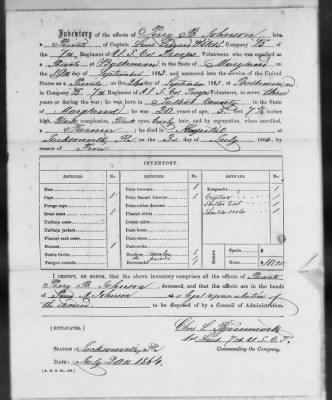 Inventory of the effects of Perry B. Johnson late
a Private of Captain Company "B" of
the 7th Regiment of U. S. Col Troops Volunteers, who was enlisted as
a Private at Baltimore in the State of Maryland on
the day of September 1863, and mustered into the service of the United
States as a Private, on the day of September 1863, at Baltimore, Md,
in Company "B" 7th Regiment of U. S. Col Troops Volunteers, to serve three
years or during the war; he was born in Talbot County in the State
of Maryland; he was 20 years of age, 5 feet 7½ inches
high, Black complexion, Black eyes, Curly hair, and by occupation, when enrolled,
a Farmer; he died in Hospital at
Jacksonville, Fla. on the day of July 1864, by
reason of Fever
INVENTORY.
ARTICLES. No. ARTICLES. No. ARTICLES. No.
Hats
Caps 1
Forage caps
Great coats 1
Uniform coats
Uniform jackets
Flannel sack coats
Blouses 1
Stable frocks
Fatigue overalls
Pairs trowsers 1
Pairs flannel drawers
Pairs cotton drawers
Flannel shirts
Cotton shirts
Pairs boots
Pairs shoes
Pairs socks
Blankets
Haversacks
Knapsacks 1
Canteen
Shelter tent
MONEY.
Specie $
Notes
I CERTIFY, ON HONOR, that the above inventory comprises all the effects of Private
Perry B. Johnson, deceased, and that the effects are in the hands
of Johnson a legal representative of
the deceased to be disposed of by a Council of Administration.
(DUPLICATES.)
Chas. S.
1st Lieut 7th U. S. C. T.
Commanding the Company.
STATION: Jacksonville, Fla
DATE: July 20th 1864.